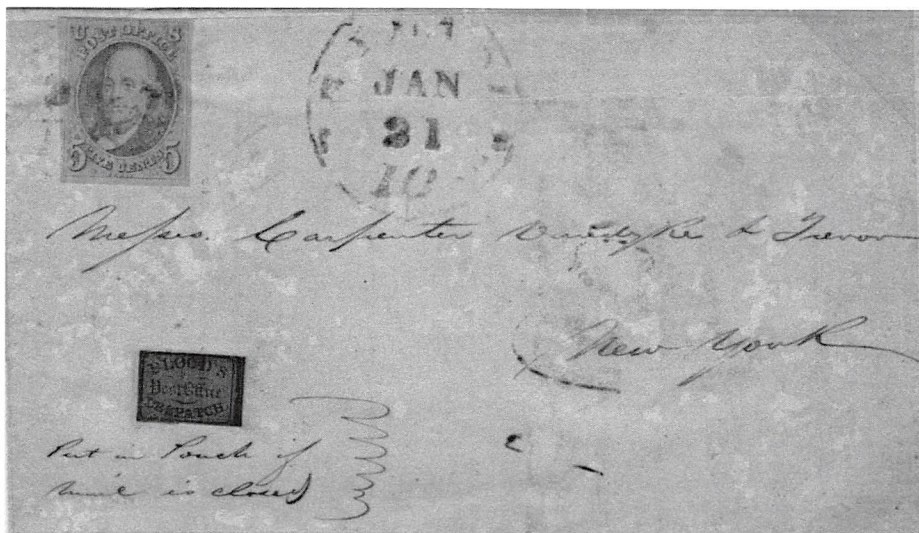 U S
POST OFFICE
FIVE CENTS
5 5
JAN
31
10
Messrs. Carpenter & Trevor
New York
BLOOD'S
Post Office
DESPATCH
Put in Pouch if
mail is closed